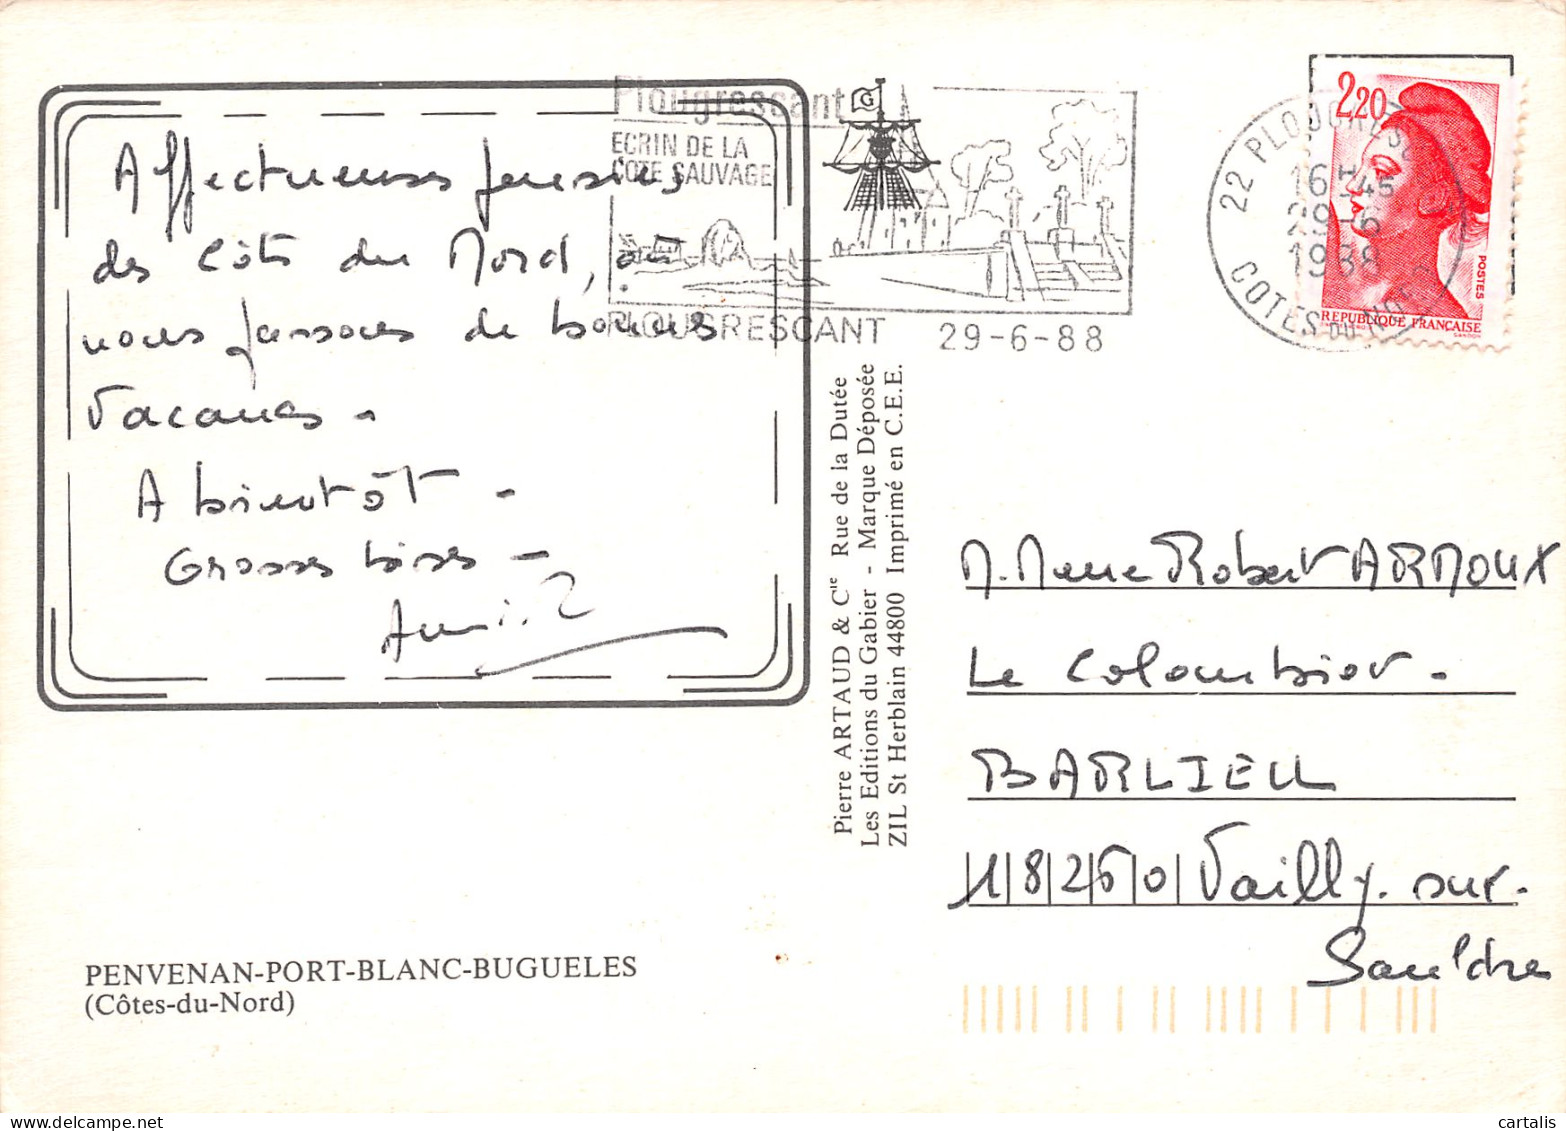 Plougrescant
ECRIN DE LA
COTE SAUVAGE
PLOUGRESCANT 29-6-88
G
22 PLOUGRES
16H45
29-6
1988
COTES DU NORD
2,20
POSTES
REPUBLIQUE FRANÇAISE
GANDON
Affectueuses pensées
des Côtes du Nord, où
nous passons de bonnes
Vacances -
A bientôt -
Grosses bises -
Pierre ARTAUD & Cie Rue de la Dutée
Les Editions du Gabier - Marque Déposée
ZIL St Herblain 44800 Imprimé en C.E.E.
M. Mme Robert ARNOUX
Le Colombier -
BARLIEU
18260 Vailly-sur-
Sauldre
PENVENAN-PORT-BLANC-BUGUELES
(Côtes-du-Nord)
cartalis